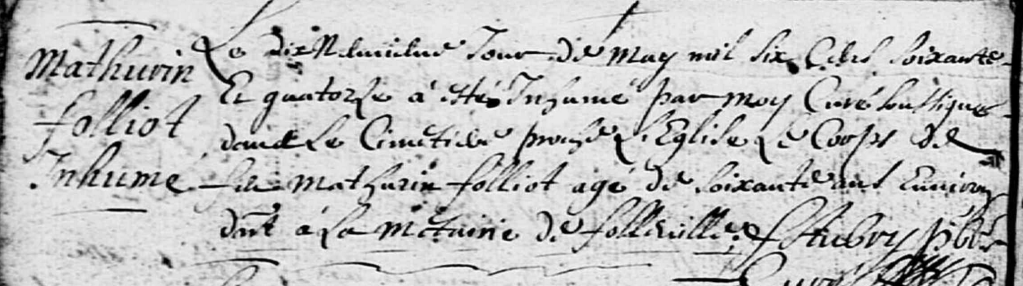 Mathurin
Folliot
Inhumé
Le dix Neuvieme Jour de may mil six Cens soixante
Et quatorse à etté Inhumé par moy Curé soussigné
dans Le Cimetiere proche L'Eglise Le Corps de
feu Mathurin folliot agé de soixante ans Environ
dmt à La metairie de folleville. F Aubry pbre
Curé